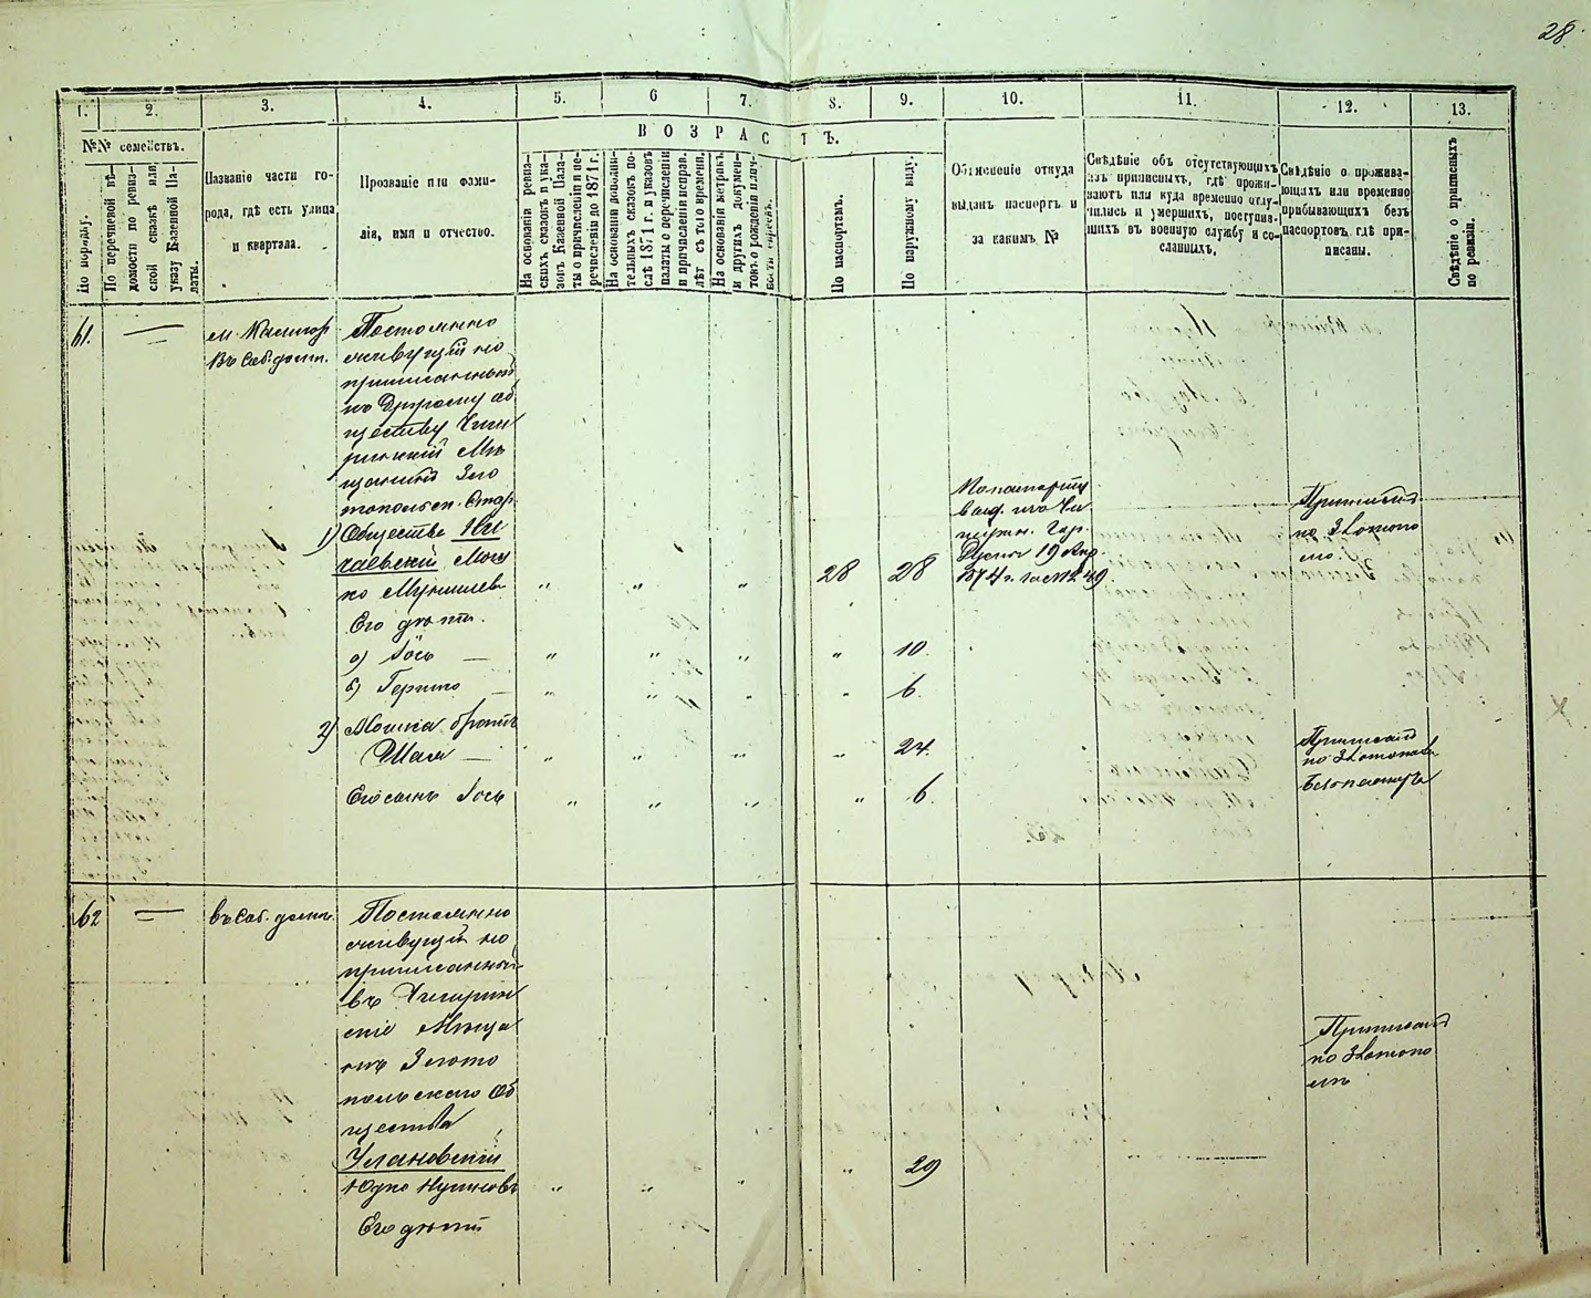 28.
1. 2. 3. 4. 5. 6 7. 8. 9. 10. 11. 12. 13.
ВОЗРАСТЪ.
№№ семействъ.
По порядку.
По перечневой вѣ-
домости по ревиз-
ской сказкѣ или
указу Казенной Па-
латы.
Названіе части го-
рода, гдѣ есть улица
и квартала.
Прозваніе или фами-
лія, имя и отчество.
На основаніи ревиз-
скихъ сказокъ и ука-
зовъ Казенной Пала-
ты о причисленіи и пе-
речисленіи до 1871 г.
На основаніи дополни-
тельныхъ сказокъ по-
слѣ 1871 г. и указовъ
палаты о перечисленіи
и причисленіи исправ.
лѣт съ того времени.
На основаніи метрикъ
и другихъ докумен-
товъ о рожденіи и лич-
По паспортамъ.
По наружному виду.
Объясненіе откуда
выданъ паспортъ и
за какимъ №
Свѣдѣніе объ отсутствующихъ
изъ приписныхъ, гдѣ прожи-
ваютъ или куда временно отлу-
чились и умершихъ, поступив-
шихъ въ военную службу и со-
сланныхъ.
Свѣдѣніе о прожива-
ющихъ или временно
прибывающихъ безъ
паспортовъ гдѣ при-
писаны.
Свѣдѣніе о приписныхъ
по ревизіи.
61. —
въ Соб. домѣ.
Постоянно
живущій но
приписанный
къ Другому об
ществу Чиги
ринскій Мѣ
щанинъ Зло
топольск. Стар.
1) Общества
28 28
ко
Его дѣти.
а) Іось — " " " " 10.
б) Гершко — " " " " 6.
2) Мошка братъ
Шая — " " " " 24.
Его сынъ Іось " " " " 6.
Паспорту
выд. изъ Чи
гирин. Гор.
Думы 19 Апр.
1874 г. за № 249.
Приписанъ
по Златопо
лю.
Приписанъ
по Златополю
Безпаспорт
62 — въ Соб. домѣ.
Постоянно
живущій но
приписанный
въ Чигирин
скіе Мѣща
нъ Злото
польскаго Об
щества
Улановскій
Юдко " " " " 29
Его дѣти
Приписанъ
по Златопо
лѣ